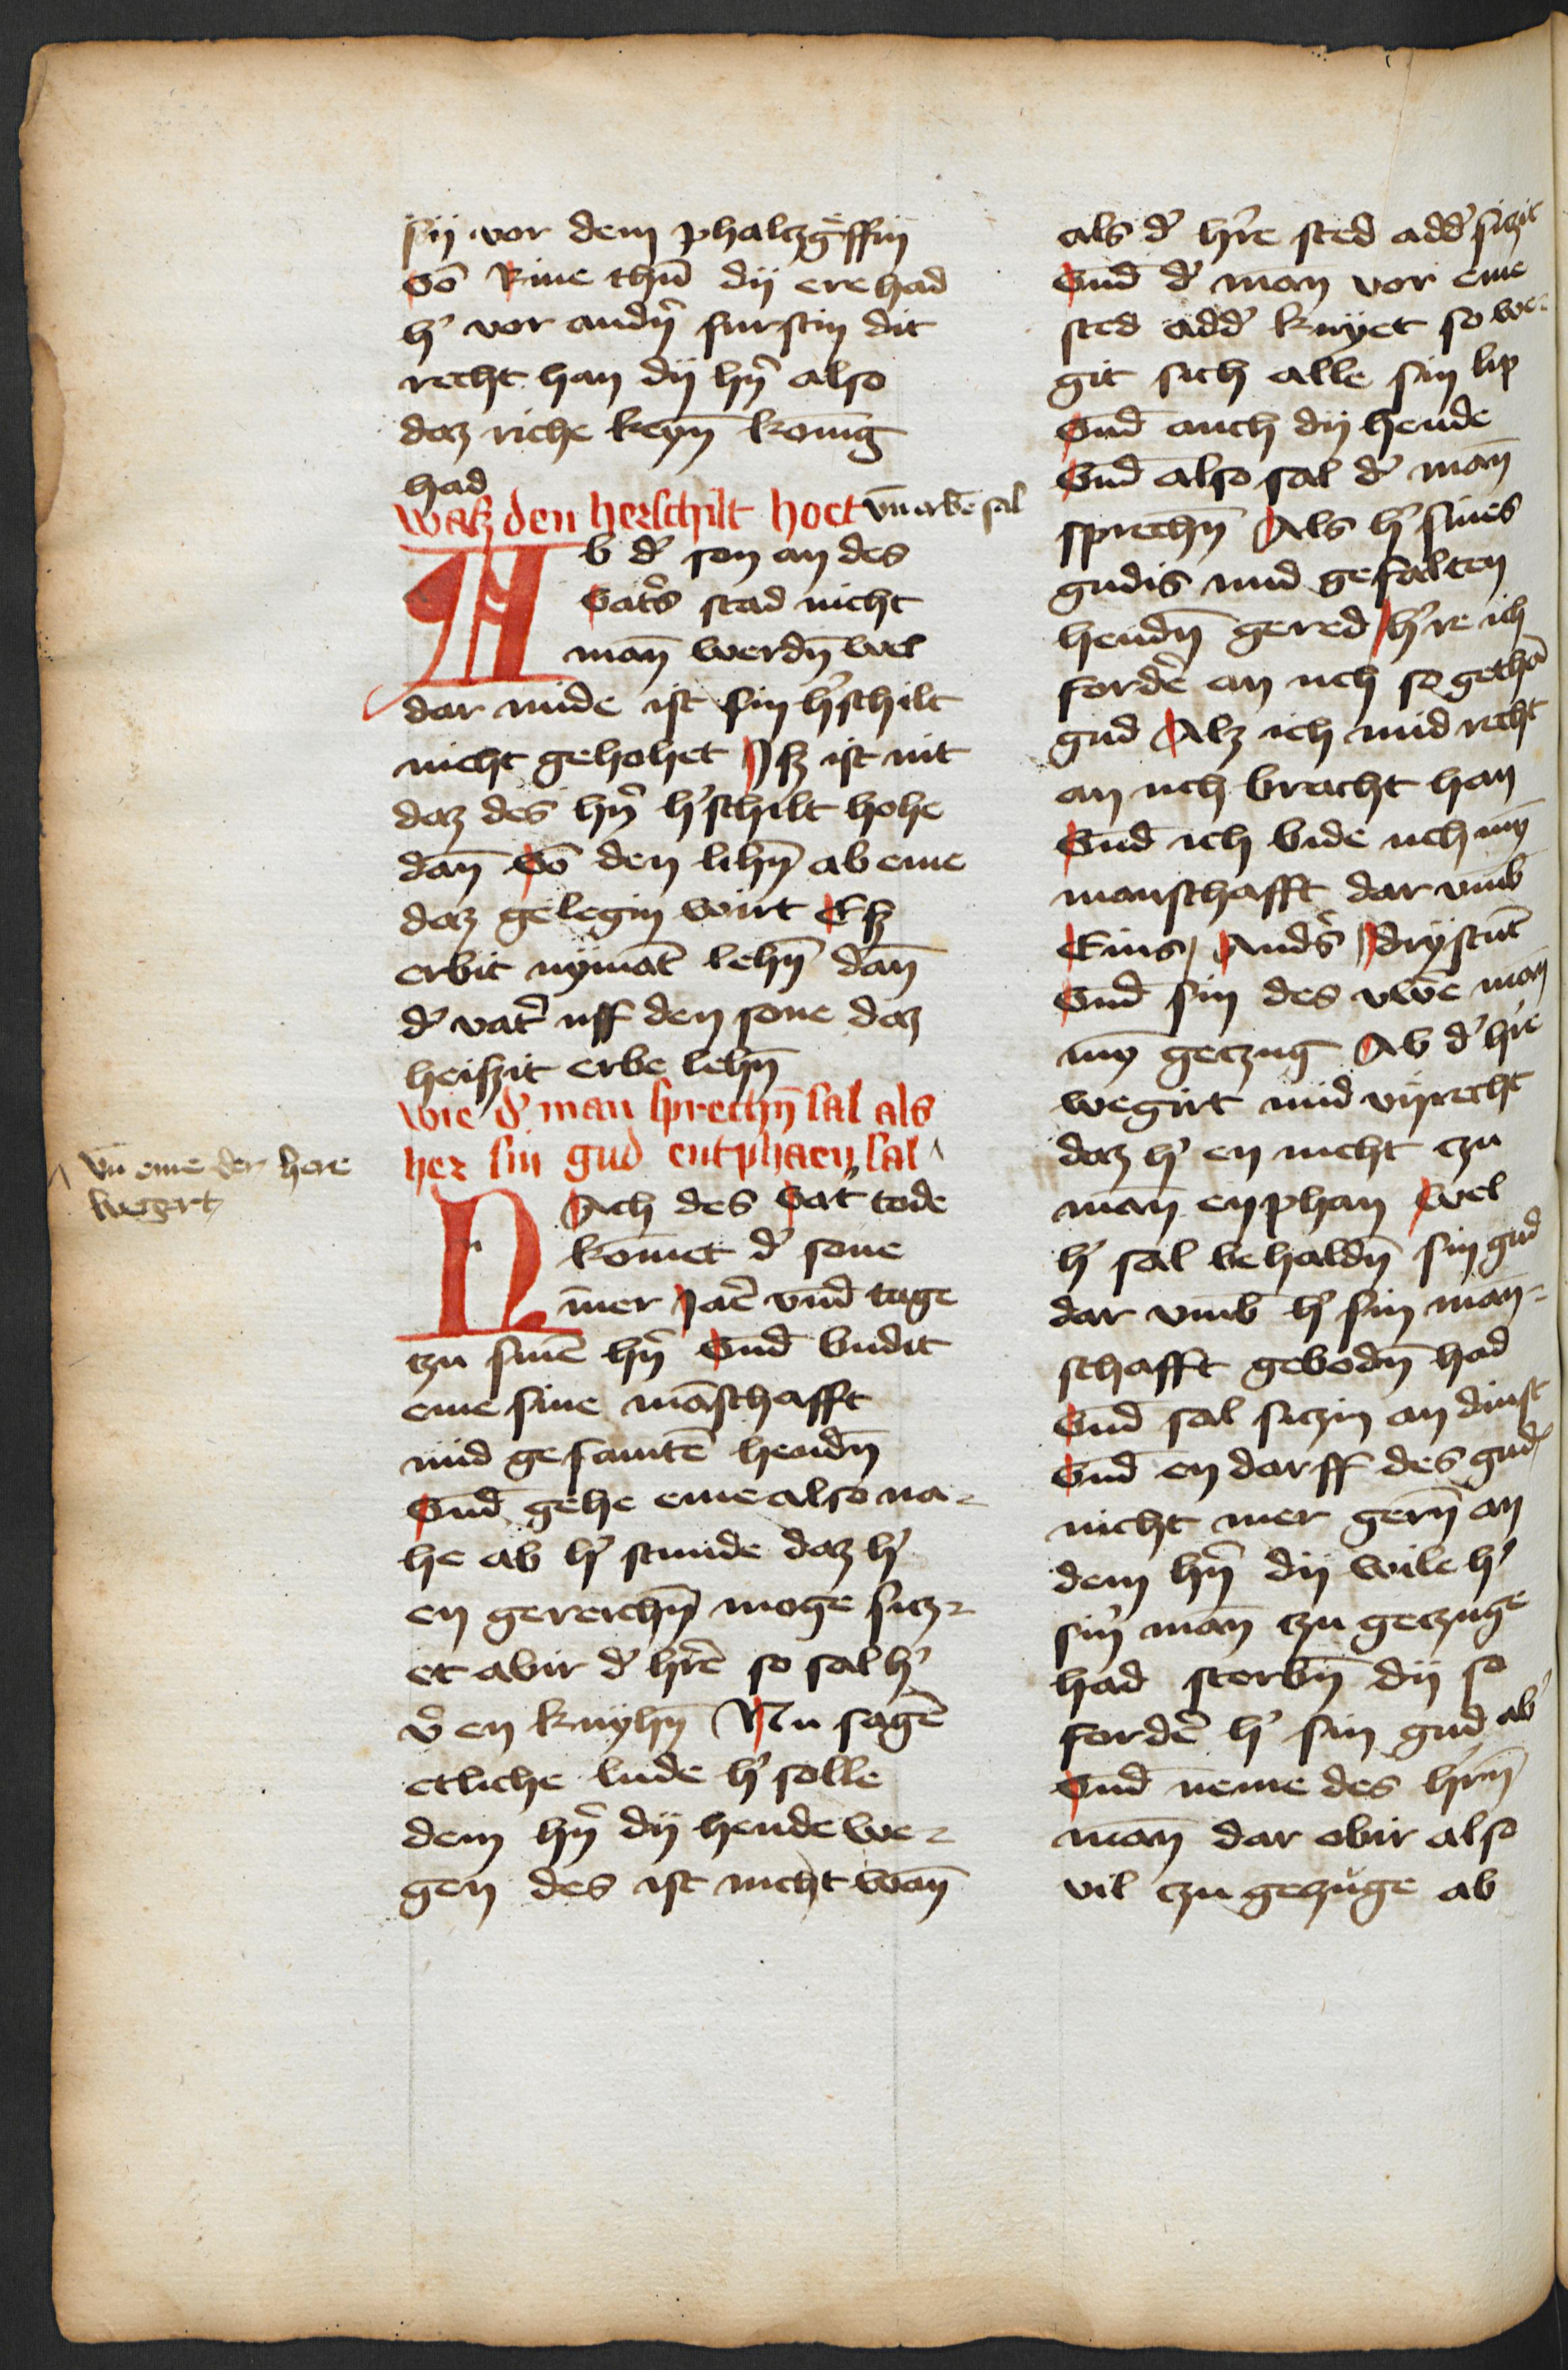 sij vor dem phaltzgͣffin
Vō Rine thūn dij ere had
h' vor andn̄ furstin dit
recht han dij hn̄ also
daz riche keyn̄ konig
had
Waß den herschilt hoet vn̄ erbē sal
Ab d' son an des
Vat's stad nicht
man̄ werdn̄ wel
dar mide ist sin h'schilt
nicht gehohet Iß ist nit
daz des hn̄ h'schilt hohe
dan̄ Vō den lihn̄ ab eme
daz gelegin wirt Eß
erbit nymāt lehn̄ dan̄
d' vat' uff den sone daz
heißit erbe lehn̄
Wie d' man sprechn̄ sal als
her sin gud entphaen sal ^
^ vn̄ eme der here
wegert
NAch des Vat' tode
komet d' sone
in̄er Jaer vnd tage
tzu sinē hn̄ Vnd budit
eme sine māschafft
mid gesamtē hendn̄
Vnd gehe eme also na-
he ab h' stunde daz h'
en gereichn̄ moge sitz-
et abir d' h're so sal h'
v̄ en knyhn̄ Nu sagē
etliche lude h' solle
dem hn̄ dij hende we-
gen des ist nicht wan̄
als d' h're sted add' sitzit
Vnd d' man vor eme
sted add' knyet so we-
git sich alle sin lip
Vnd auch dij hende
Vnd also sal d' man̄
sprechn̄ Als h' sines
gudis mid gefalten
hendn̄ gered h're ich
forde' an uch so gethā
gud Alz ich mid recht
an uch bracht han
Vnd ich bide uch my
manschafft dar vmb
Eins, And's drystūt
Vnd sin des uwe man̄
my getzug Ab d' h're
wegirt mid vnrecht
daz h' en nicht tzu
man̄ enphan Wel
h' sal behaldn̄ sin gud
dar vmb h' sin man̄-
schafft gebodn̄ had
Vnd sal sitzin an dinst
Vnd en darff des gud'
nicht mer gern̄ an
dem hn̄ dij wile h'
sin' man̄ tzu getzuge
had storbn̄ dij so
forde' h' sin gud ab'
Vnd neme des h'rn̄
man̄ dar obir also
vil tzu getzuge ab